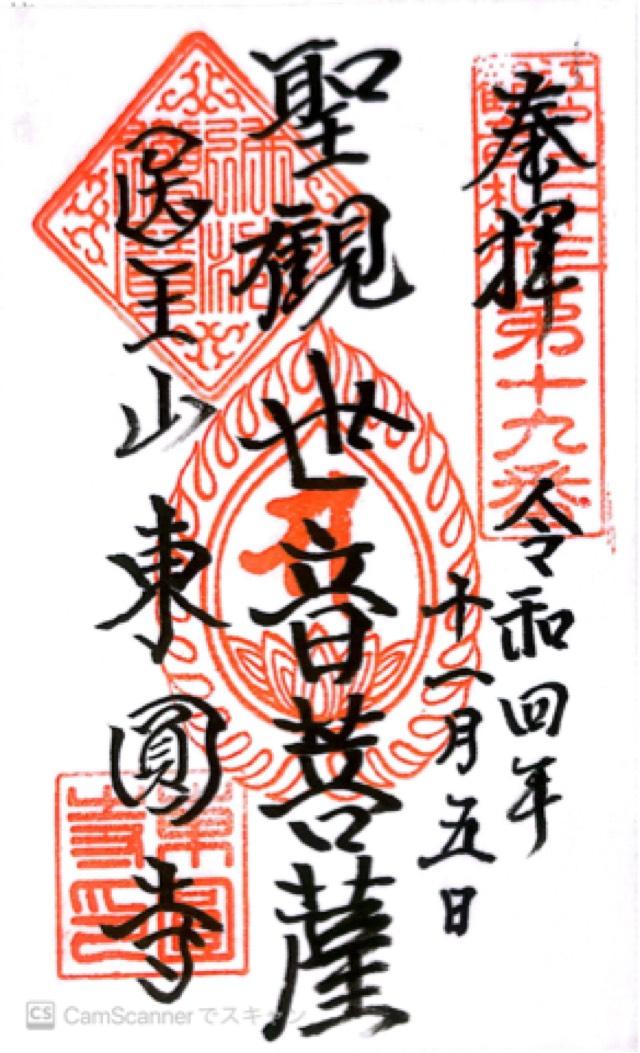 奉拝
第十九番
令和四年
十一月五日
聖觀世音菩薩
医王山 東圓寺
東圓寺印
CS CamScannerでスキャン